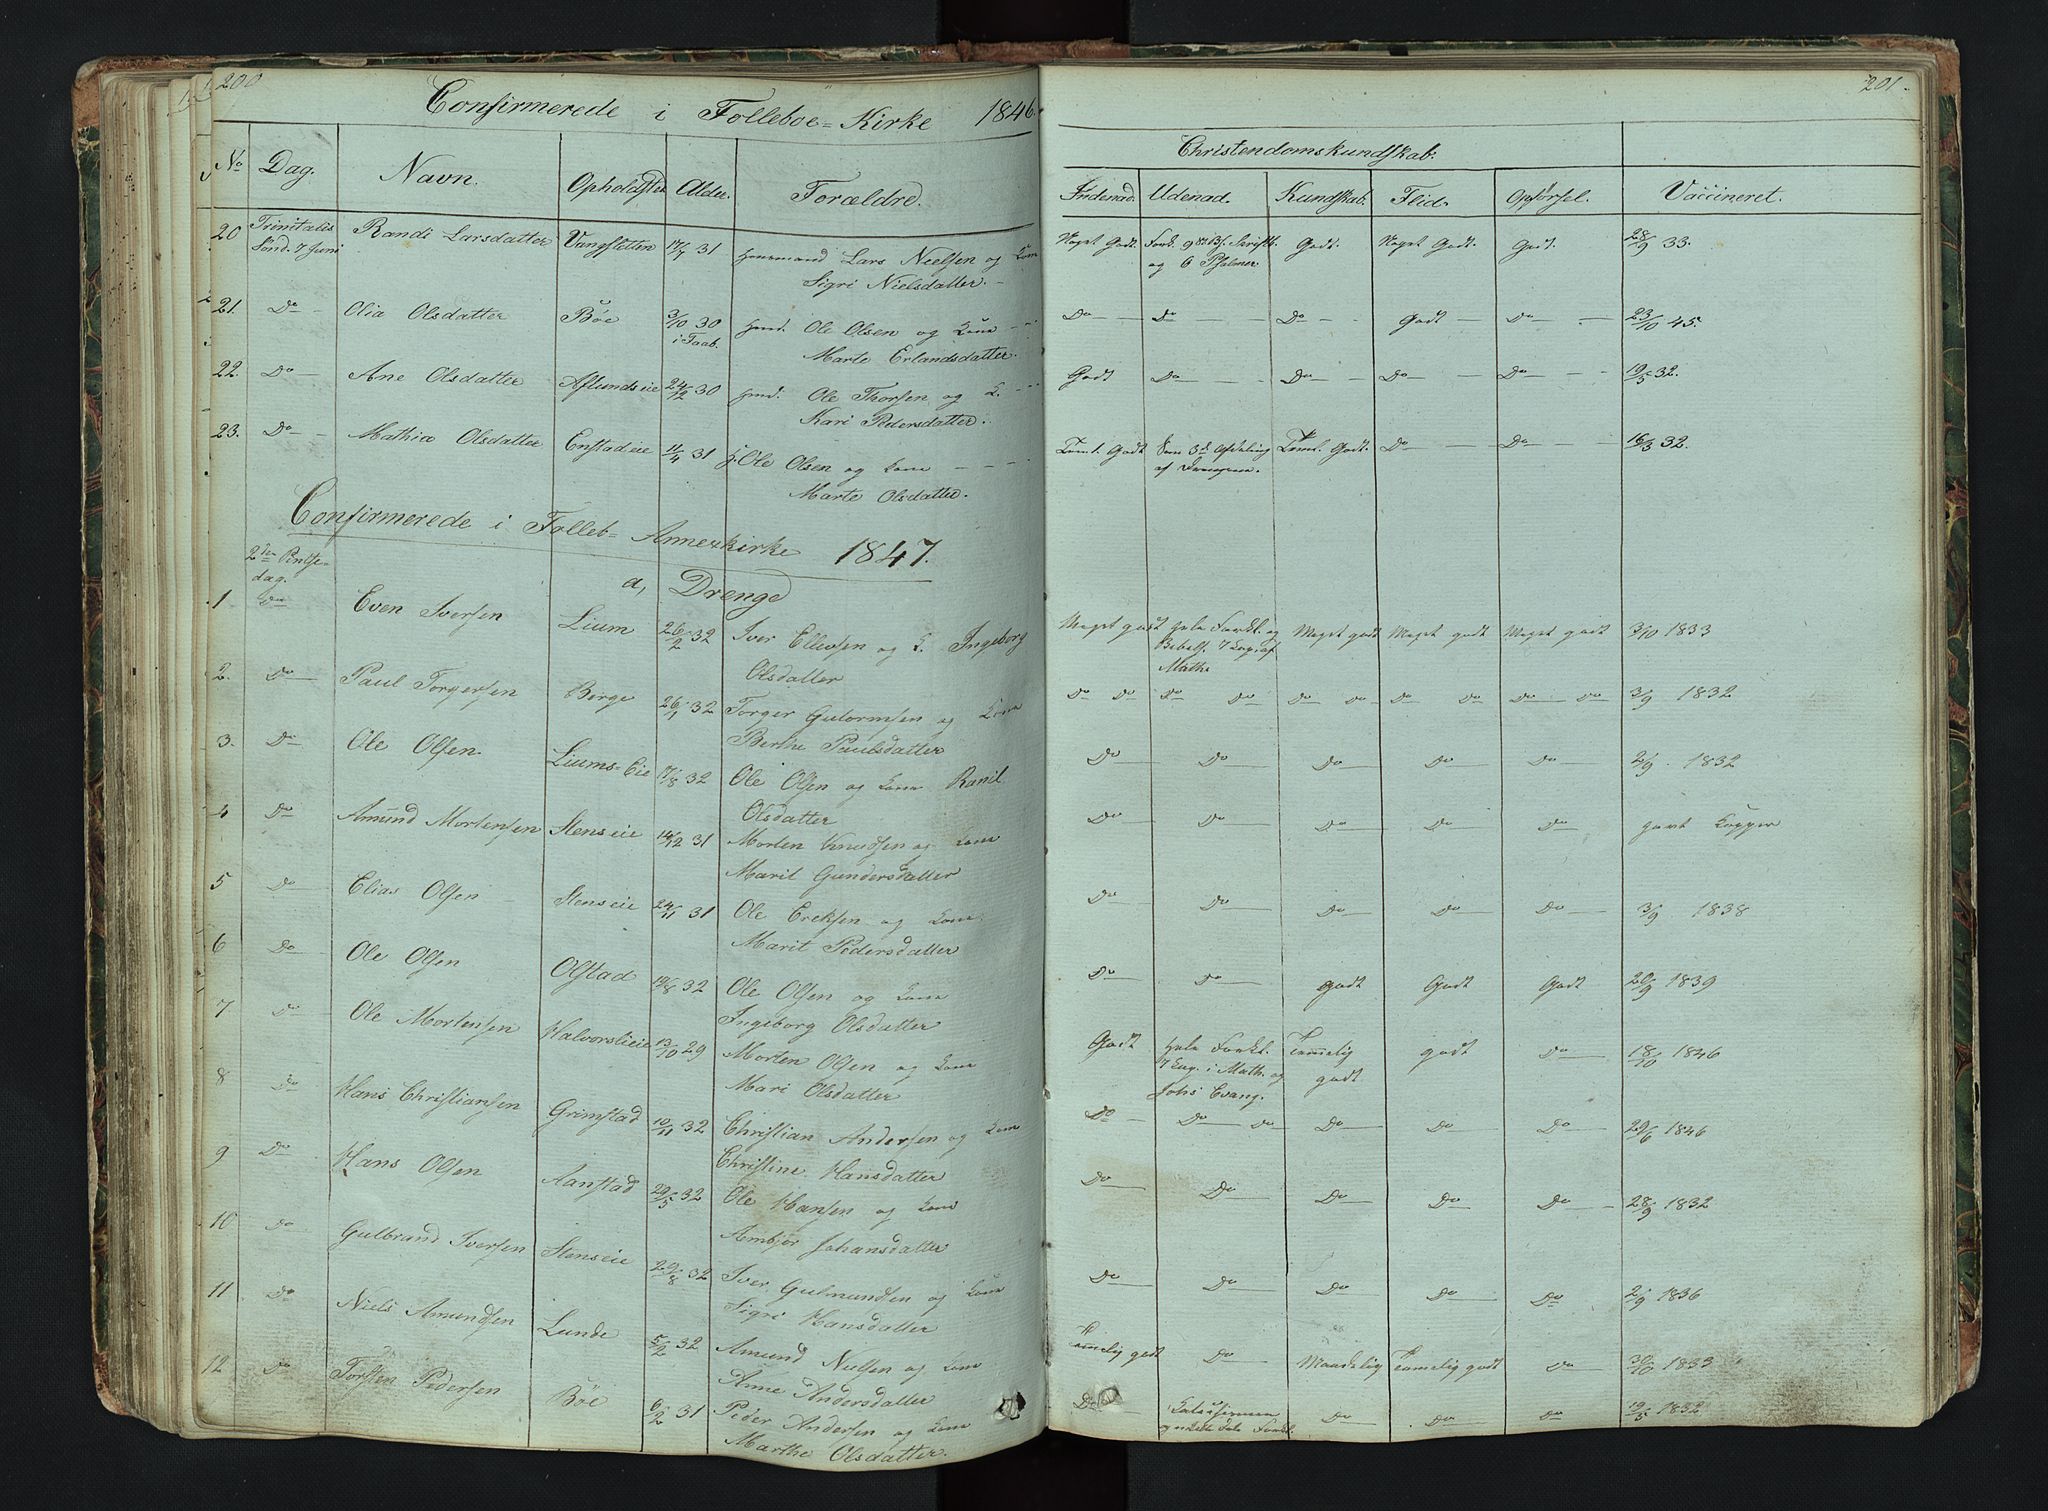 200
Confirmerede i Folleboe-Kirke 1846.
No Dag. Navn. Opholdssted Alder Forældre.
20 Trinitatis Randi Larsdatter Vangsletten 17/7 31 Huusmand Lars Nielsen og Kone
Sønd. 7 Juni Sigri Nielsdatter.
21. Do Olia Olsdatter Bøe 3/10 30 Huusmd. Ole Olsen og Kone
i Faab. Marte Erlandsdatter.
22. Do Ane Olsdatter Aflundseie 24/12 30 Huusmd. Ole Thorsen og K.
Kari Pedersdatter.
23. Do Mathia Olsdatter Enstadeie 11/4 31 H. Ole Olsen og Kone
Marte Olsdatter.
Confirmerede i Folleb- Annexkirke 1847.
2den Pintse-
dag. a, Drenge
1 Do Even Iversen Lium 26/2 32 Iver Ellevsen og K. Ingeborg
Olsdatter
2. Do Paul Torgersen Berge 26/1 32 Torger Gutormsen og Kone
Berthe Paulsdatter
3. Do Ole Olsen Liums-Eie 17/8 32 Ole Olsen og Kone Ranil
Olsdatter
4 Do Amund Mortensen Stenseie 14/12 31 Morten Knudsen og Kone
Marit Gundersdatter
5 Do Elias Olsen Stenseie 24/11 31 Ole Ereksen og Kone
Marit Pedersdatter
6 Do Ole Olsen Olstad 19/8 32 Ole Olsen og Kone
Ingeborg Olsdatter
7 Do Ole Mortensen Halvorslieie 13/10 29 Morten Olsen og Kone
Mari Olsdatter
8 Do Hans Christiansen Grimstad 10/11 32 Christian Andersen og Kone
Christine Hansdatter
9 Do Hans Olsen Aanstad 29/5 32 Ole Hansen og Kone
Ambjør Johansdatter
10 Do Gulbrand Iversen Stenseie 29/8 32 Iver Gulmundsen og Kone
Sigri Hansdatter
11 Do Niels Amundsen Lunde 5/2 32 Amund Nielsen og Kone
Anne Andersdatter
12 Do Torsten Pedersen Bøe 6/2 31 Peder Andersen og Kone
Marthe Olsdatter.
201.
Christendomskundskab.
Indenad. Udenad. Kundskab. Flid. Opførsel. Vaccineret.
Meget Godt. Fork. Bi. Skrift. Godt. Meget Godt Godt. 28/9 33.
og 6 Psalmer
Do Do Do Godt Do 23/10 45.
Godt Do Do Do Do 19/5 32.
Teml. Godt Som 3de Afdeling Teml. Godt. Do Do 16/3 32.
af Drengene.
Meget godt Hele Forkl. og Meget godt Meget godt Meget godt 3/10 1833
7 Cap. af
Mathe
Do Do Do Do Do Do Do Do Do Do 3/9 1832
Do Do Do Do Do 2/9 1832
Do Do Do Do Do havt Kopper
Do Do Do Do Do 3/9 1838
Do Do godt Godt Godt 20/9 1839
Godt Hele Forkl. Temmelig godt Do 18/10 1846
7 Cap. i Math. og godt
Johs Evang.
Do Do Do Do Do Do 29/6 1846
Do Do Do Do Do 28/9 1832
Do Do Do Do Do 2/9 1836
Temmelig godt Do Maadelig Temmelig godt Do 30/10 1833
Do Do Do Do 19/5 1832